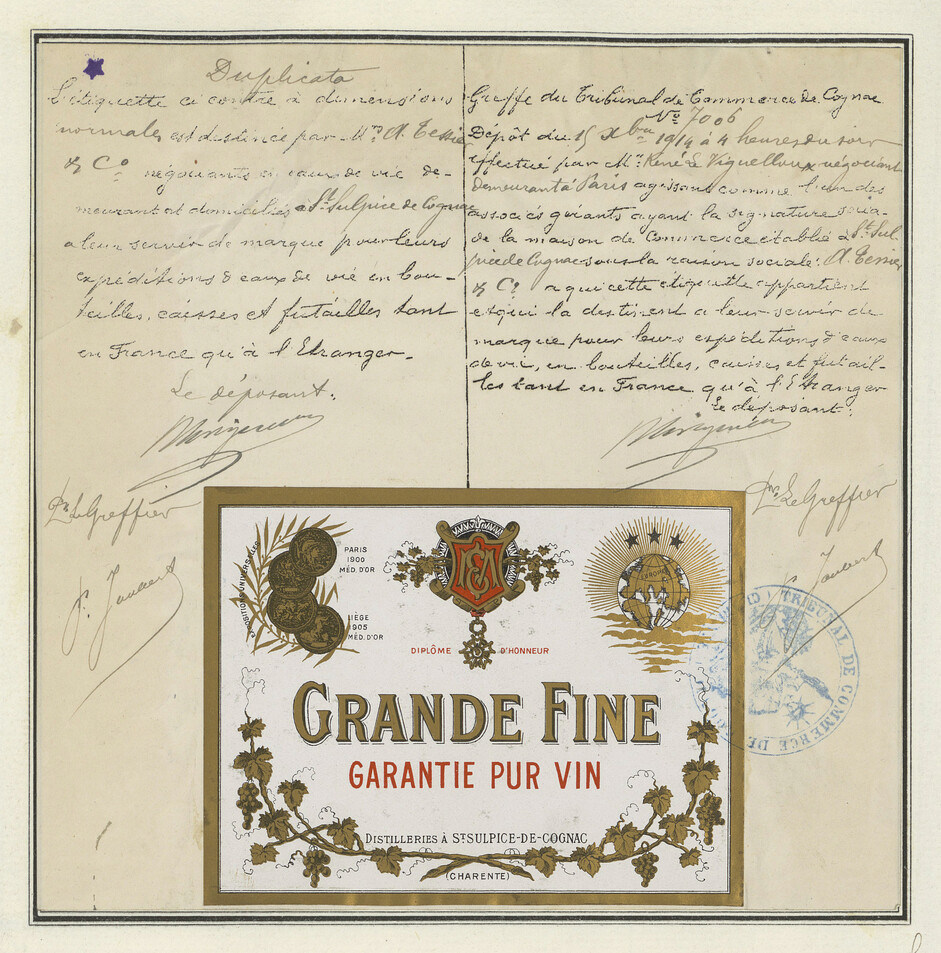 Duplicata
L'étiquette ci contre à dimensions
normales est destinée par Mrs A. Tessier
& Co négociants en eaux de vie de-
meurant et domiciliés à St Sulpice de Cognac
a leur servir de marque pour leurs
expéditions d'eaux de vie en bou-
teilles, caisses et futailles tant
en France qu'à l'Etranger.
Le déposant.
Pr Le Greffier
Greffe du Tribunal de Commerce de Cognac
No 7006
Dépôt du 15 Xbre 1914 à 4 heures du soir
effectué par Mr René Le négociant
demeurant à Paris agissant comme l'un des
associés gérants ayant la signature socia-
le de la maison de Commerce établie à St Sul-
pice de Cognac sous la raison sociale: A. Tessier
& Co a qui cette etiquette appartient
et qui la destinent a leur servir de
marque pour leurs expéditions d'eaux
de vie, en bouteilles, caisses et futail-
les tant en France qu'à l'Etranger
Le déposant:
Pr Le Greffier
EXPOSITION UNIVERSELLE
PARIS
1900
MÉD. D'OR
LIÈGE
1905
MÉD. D'OR
DIPLÔME D'HONNEUR
GRANDE FINE
GARANTIE PUR VIN
DISTILLERIES À ST SULPICE-DE-COGNAC
(CHARENTE)
TRIBUNAL DE COMMERCE DE